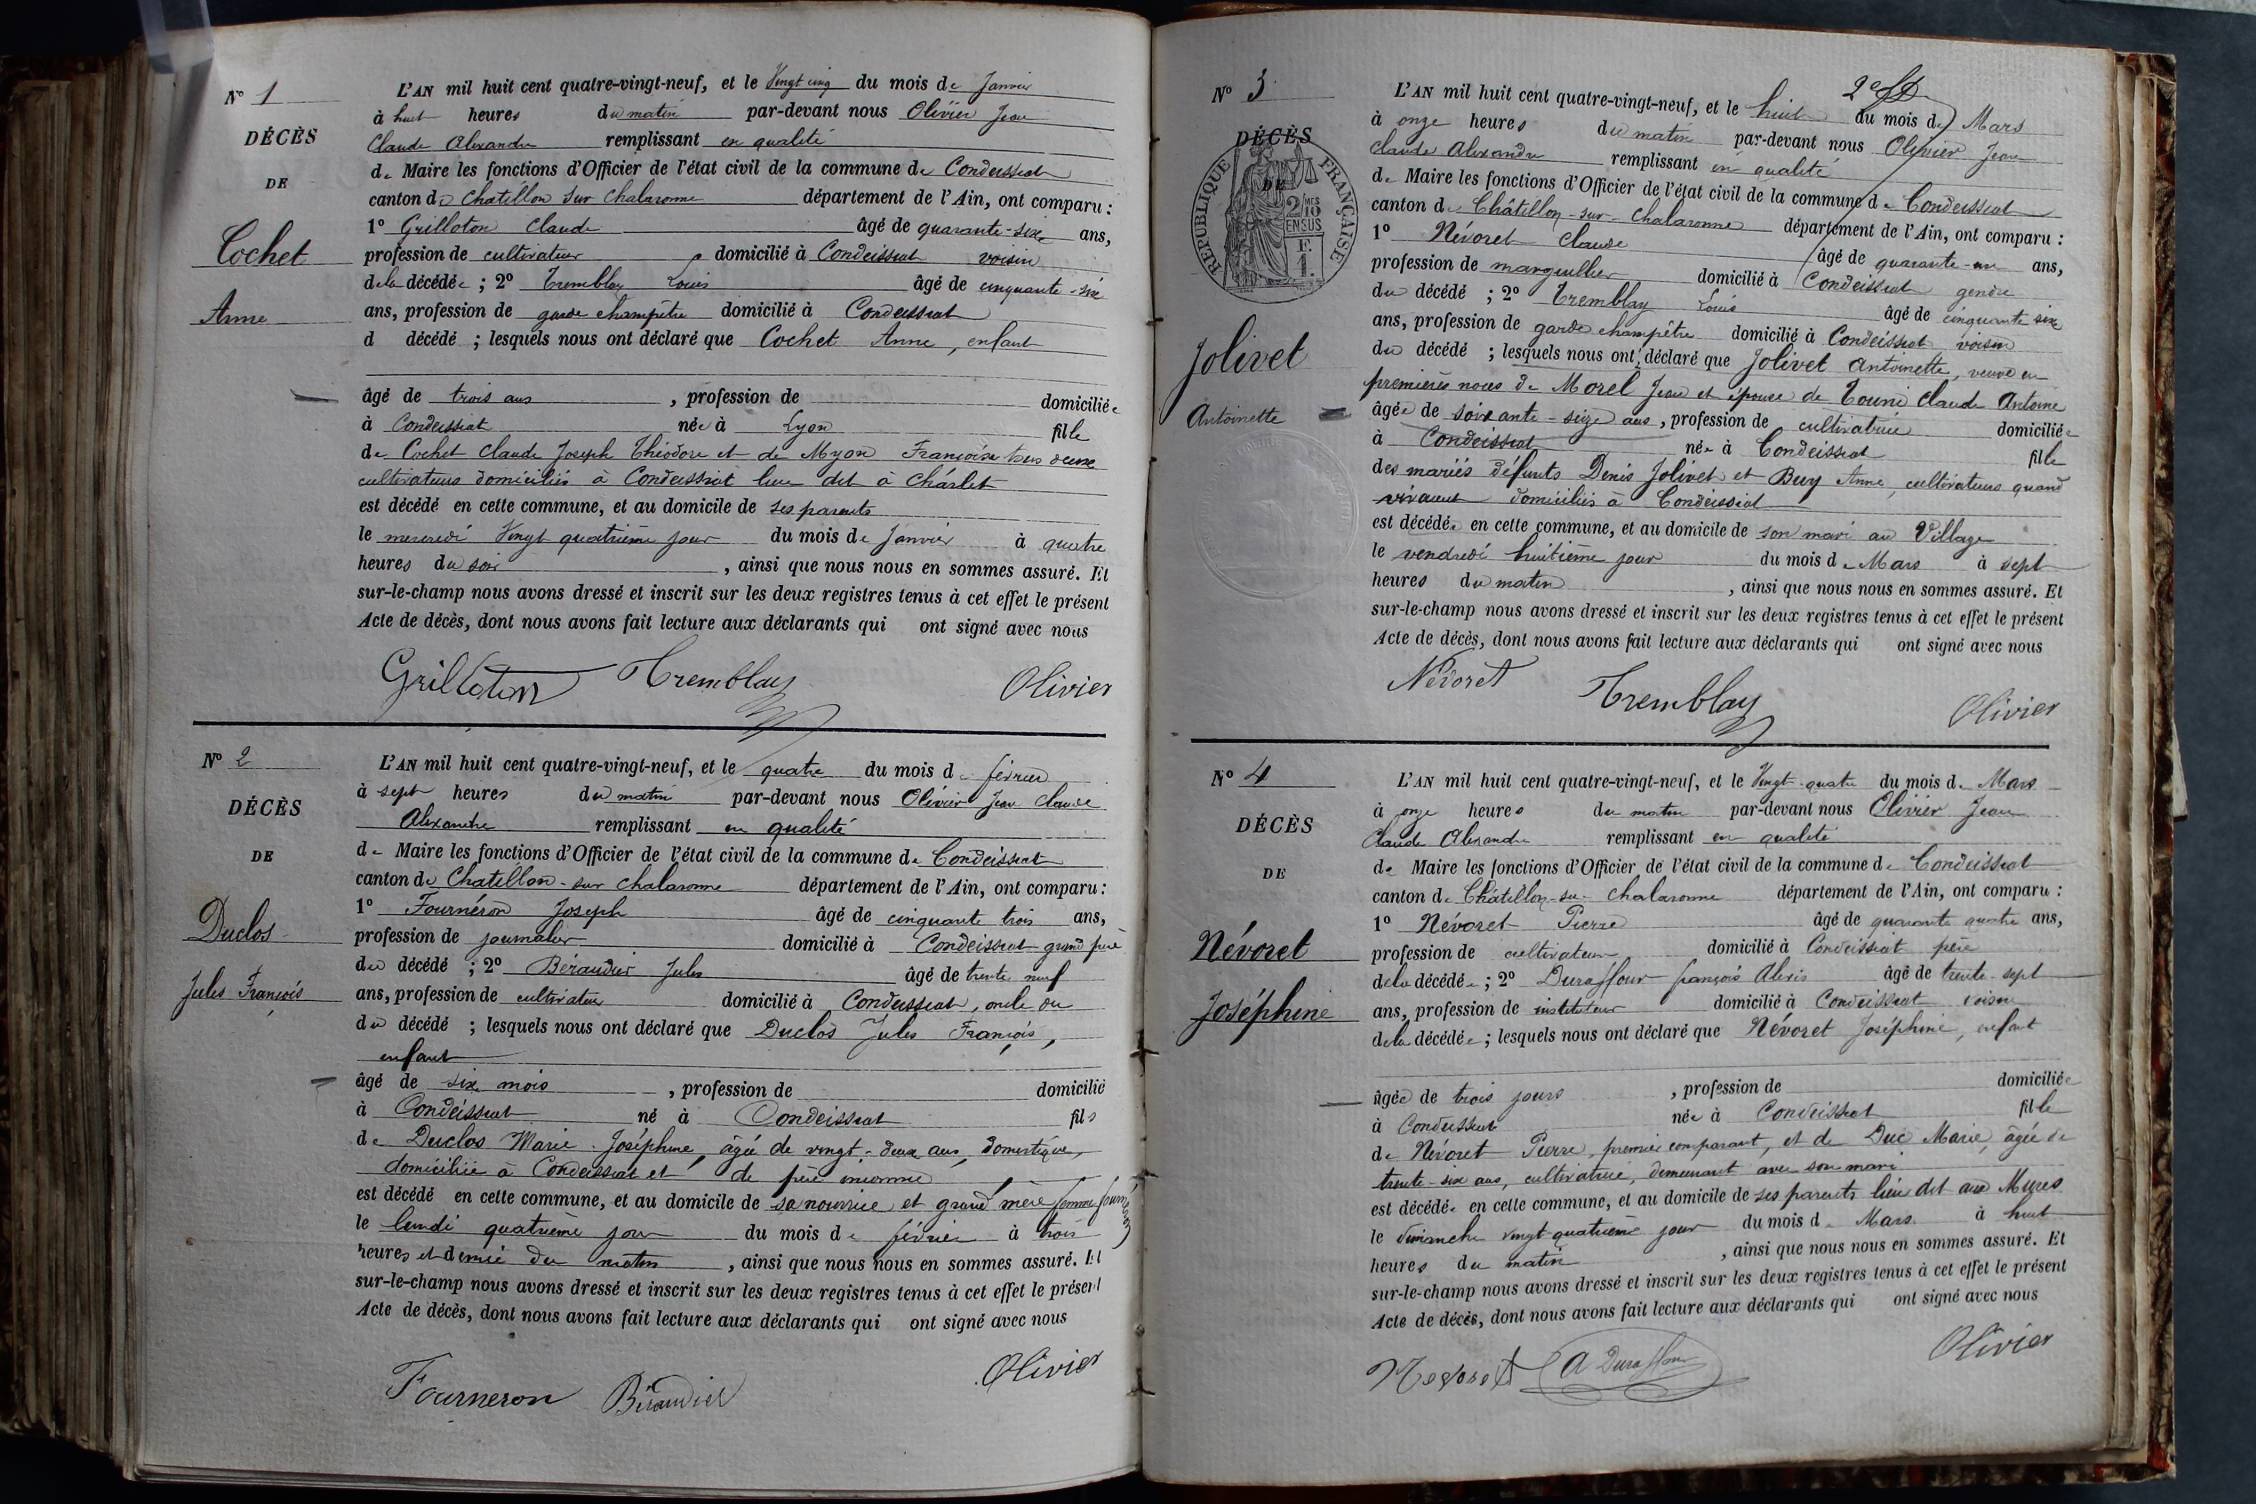 N° 1
DÉCÈS
DE
Cochet
Anne
L'AN mil huit cent quatre-vingt-neuf, et le Vingt cinq du mois de Janvier
à huit heures du matin par-devant nous Olivier Jean
Claude Alexandre remplissant en qualité
de Maire les fonctions d'Officier de l'état civil de la commune de Condeissiat
canton de Chatillon sur Chalaronne département de l'Ain, ont comparu :
1° Grilloton Claude âgé de quarante-six ans,
profession de cultivateur domicilié à Condeissiat voisin
de la décédée ; 2° Tremblay Louis âgé de cinquante-six
ans, profession de garde champêtre domicilié à Condeissiat
d décédé ; lesquels nous ont déclaré que Cochet Anne, enfant
âgé de trois ans , profession de domiciliée
à Condeissiat née à Lyon fille
de Cochet Claude Joseph Théodore et de Myon Françoise tous deux
cultivateurs domiciliés à Condeissiat lieu dit à Charlet
est décédé en cette commune, et au domicile de ses parents
le mercredi Vingt quatrième jour du mois de Janvier à quatre
heures du soir , ainsi que nous nous en sommes assuré. Et
sur-le-champ nous avons dressé et inscrit sur les deux registres tenus à cet effet le présent
Acte de décès, dont nous avons fait lecture aux déclarants qui ont signé avec nous
Grilloton Tremblay Olivier
N° 2
DÉCÈS
DE
Duclos
Jules François
L'AN mil huit cent quatre-vingt-neuf, et le quatre du mois de février
à sept heures du matin par-devant nous Olivier Jean Claude
Alexandre remplissant en qualité
de Maire les fonctions d'Officier de l'état civil de la commune de Condeissiat
canton de Chatillon-sur Chalaronne département de l'Ain, ont comparu :
1° Fournéron Joseph âgé de cinquante trois ans,
profession de journalier domicilié à Condeissiat grand père
du décédé ; 2° Béraudier Jules âgé de trente neuf
ans, profession de cultivateur domicilié à Condeissiat, oncle du
du décédé ; lesquels nous ont déclaré que Duclos Jules François,
enfant
âgé de six mois , profession de domicilié
à Condeissiat né à Condeissiat fils
de Duclos Marie Joséphine, âgée de vingt-deux ans, domestique,
domiciliée à Condeissiat et de père inconnu
est décédé en cette commune, et au domicile de sa nourrice et grand mère femme Fourneron
le lundi quatrième jour du mois de février à trois
heures et demie du matin , ainsi que nous nous en sommes assuré. Et
sur-le-champ nous avons dressé et inscrit sur les deux registres tenus à cet effet le présent
Acte de décès, dont nous avons fait lecture aux déclarants qui ont signé avec nous
Fourneron Béraudier Olivier
N° 3
DÉCÈS
DE
RÉPUBLIQUE FRANÇAISE
2/10 MES
EN SUS
1 F.
Jolivet
Antoinette
L'AN mil huit cent quatre-vingt-neuf, et le huit du mois de Mars
à onze heures du matin par-devant nous Olivier Jean
Claude Alexandre remplissant en qualité
de Maire les fonctions d'Officier de l'état civil de la commune de Condeissiat
canton de Châtillon-sur-Chalaronne département de l'Ain, ont comparu :
1° Névoret Claude âgé de quarante-un ans,
profession de marguillier domicilié à Condeissiat gendre
du décédé ; 2° Tremblay Louis âgé de cinquante six
ans, profession de garde champêtre domicilié à Condeissiat voisin
du décédé ; lesquels nous ont déclaré que Jolivet Antoinette, veuve en
premières noces de Morel Jean et épouse de Touni Claude Antoine
âgée de soixante-seize ans, profession de cultivatrice domiciliée
à Condeissiat née à Condeissiat fille
des mariés défunts Denis Jolivet et Buy Anne, cultivateurs quand
vivaient domiciliés à Condeissiat
est décédée en cette commune, et au domicile de son mari au Village
le vendredi huitième jour du mois de Mars à sept
heures du matin , ainsi que nous nous en sommes assuré. Et
sur-le-champ nous avons dressé et inscrit sur les deux registres tenus à cet effet le présent
Acte de décès, dont nous avons fait lecture aux déclarants qui ont signé avec nous
Névoret Tremblay Olivier
N° 4
DÉCÈS
DE
Névoret
Joséphine
L'AN mil huit cent quatre-vingt-neuf, et le Vingt-quatre du mois de Mars
à onze heures du matin par-devant nous Olivier Jean
Claude Alexandre remplissant en qualité
de Maire les fonctions d'Officier de l'état civil de la commune de Condeissiat
canton de Châtillon-sur-Chalaronne département de l'Ain, ont comparu :
1° Névoret Pierre âgé de quarante quatre ans,
profession de cultivateur domicilié à Condeissiat père
de la décédée ; 2° Duraffour françois Alexis âgé de trente-sept
ans, profession de instituteur domicilié à Condeissiat voisin
de la décédée ; lesquels nous ont déclaré que Névoret Joséphine, enfant
âgée de trois jours , profession de domiciliée
à Condeissiat née à Condeissiat fille
de Névoret Pierre, premier comparant, et de Duc Marie, âgée de
trente-six ans, cultivatrice, demeurant avec son mari
est décédée en cette commune, et au domicile de ses parents lieu dit aux Mures
le dimanche vingt-quatrième jour du mois de Mars à huit
heures du matin , ainsi que nous nous en sommes assuré. Et
sur-le-champ nous avons dressé et inscrit sur les deux registres tenus à cet effet le présent
Acte de décès, dont nous avons fait lecture aux déclarants qui ont signé avec nous
Nevoret A Duraffour Olivier